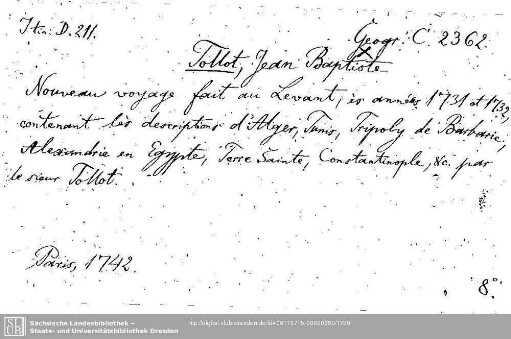 Itin: D. 211.
Geogr: C 2362.
Tollot, Jean Baptiste
Nouveau voyage fait au Levant, ès années 1731 et 1732,
contenant les descriptions d'Alger, Tunis, Tripoly de Barbarie,
Alexandrie en Egypte, Terre Sainte, Constantinople, &c. par
le sieur Tollot.
Paris, 1742.
8°.
SLUB
Sächsische Landesbibliothek –
Staats- und Universitätsbibliothek Dresden